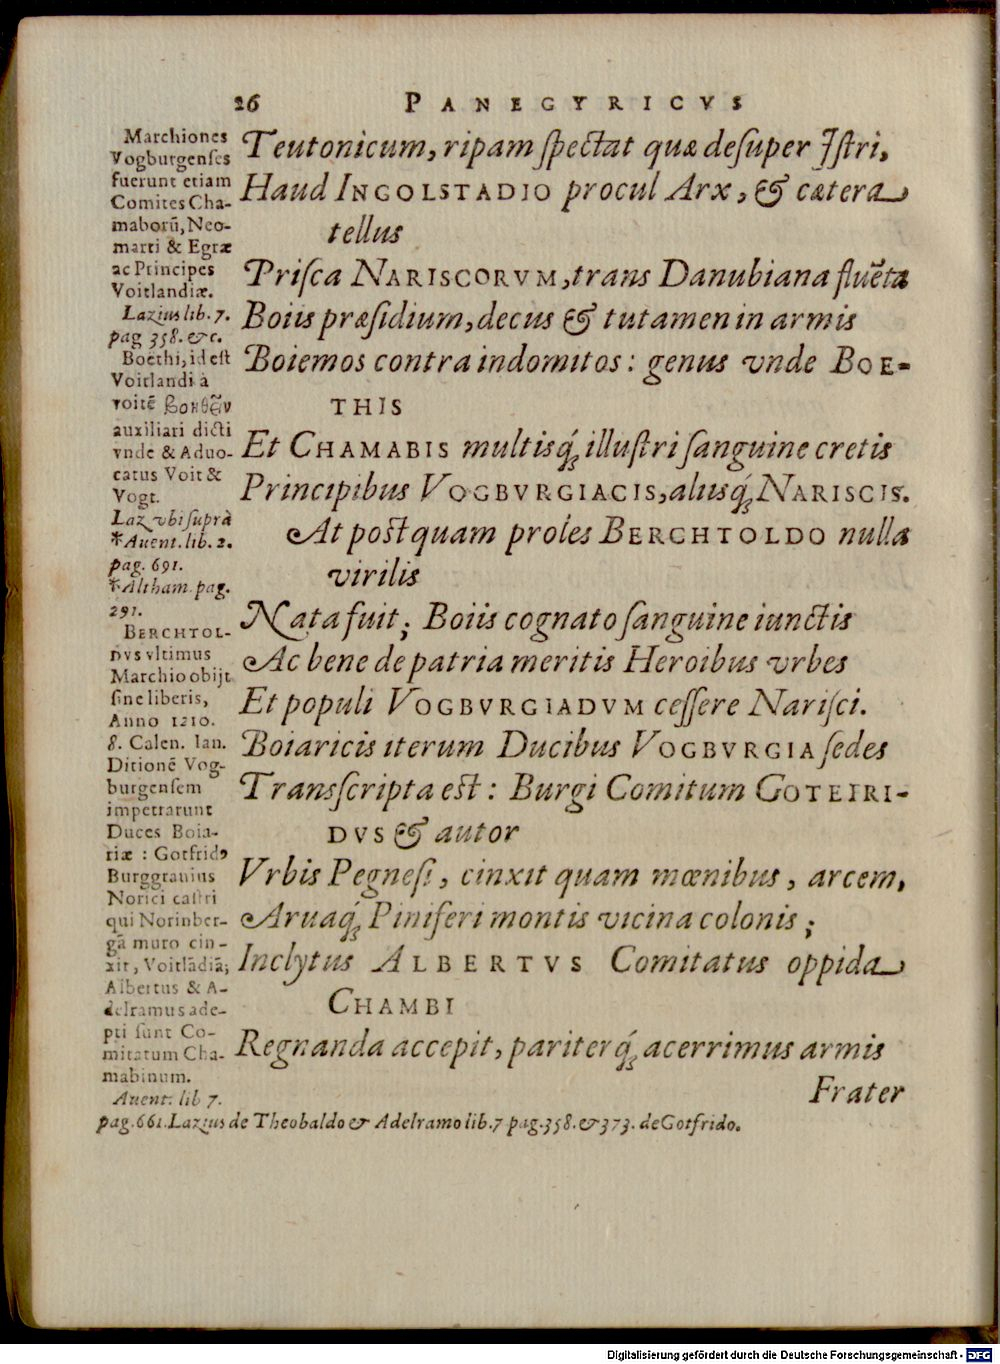 26 PANEGYRICVS
Marchiones
Vogburgenses
fuerunt etiam
Comites Cha-
maborũ, Neo-
marti & Egræ
ac Principes
Voitlandiæ.
Lazius lib. 7.
pag 358. &c.
Boëthi, id est
Voitlandi à
voitẽ βοηθεῖν
auxiliari dicti
vnde & Aduo-
catus Voit &
Vogt.
Laz, vbi suprà
*Auent. lib. 2.
pag. 691.
*Altham. pag.
291.
BERCHTOL-
DVS vltimus
Marchio obijt
sine liberis,
Anno 1210.
8. Calen. Ian.
Ditionẽ Vog-
burgensem
impetrarunt
Duces Boia-
riæ : Gotfridꝰ
Burggrauius
Norici castri
qui Norinber-
gã muro cin-
xit, Voitlãdiã;
Albertus & A-
delramus ade-
pti sunt Co-
mitatum Cha-
mabinum.
Auent. lib 7.
pag. 661. Lazius de Theobaldo & Adelramo lib. 7 pag. 358. & 373. de Gotfrido.
Teutonicum, ripam spectat quæ desuper Istri,
Haud INGOLSTADIO procul Arx, & cætera
tellus
Prisca NARISCORVM, trans Danubiana fluẽta
Boiis præsidium, decus & tutamen in armis
Boiemos contra indomitos : genus vnde BOE-
THIS
Et CHAMABIS multisq́; illustri sanguine cretis
Principibus VOGBVRGIACIS, aliisq́; NARISCIS.
At postquam proles BERCHTOLDO nulla
virilis
Nata fuit ; Boiis cognato sanguine iunctis
Ac bene de patria meritis Heroibus vrbes
Et populi VOGBVRGIADVM cessere Narisci.
Boiaricis iterum Ducibus VOGBVRGIA sedes
Transscripta est : Burgi Comitum GOTEFRI-
DVS & autor
Vrbis Pegnesi, cinxit quam mœnibus, arcem,
Aruaq́; Piniferi montis vicina colonis ;
Inclytus ALBERTVS Comitatus oppida
CHAMBI
Regnanda accepit, pariterq́; acerrimus armis
Frater
Digitalisierung gefördert durch die Deutsche Forschungsgemeinschaft - DFG